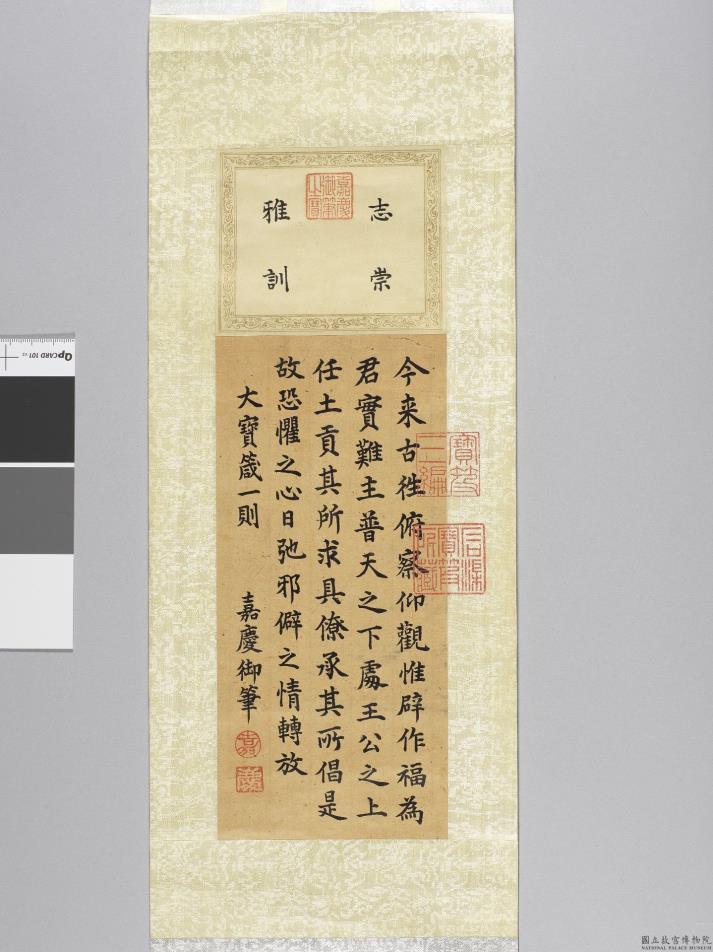 志崇
雅訓
嘉慶
御筆
之寶
今来古徃俯察仰觀惟辟作福為
君實難主普天之下處王公之上
任土貢其所求具僚承其所倡是
故恐懼之心日弛邪僻之情轉放
大寶箴一則
嘉慶御筆
寶笈
三編
石渠
寶笈
所藏
QPCARD 101 v3
國立故宮博物院
NATIONAL PALACE MUSEUM